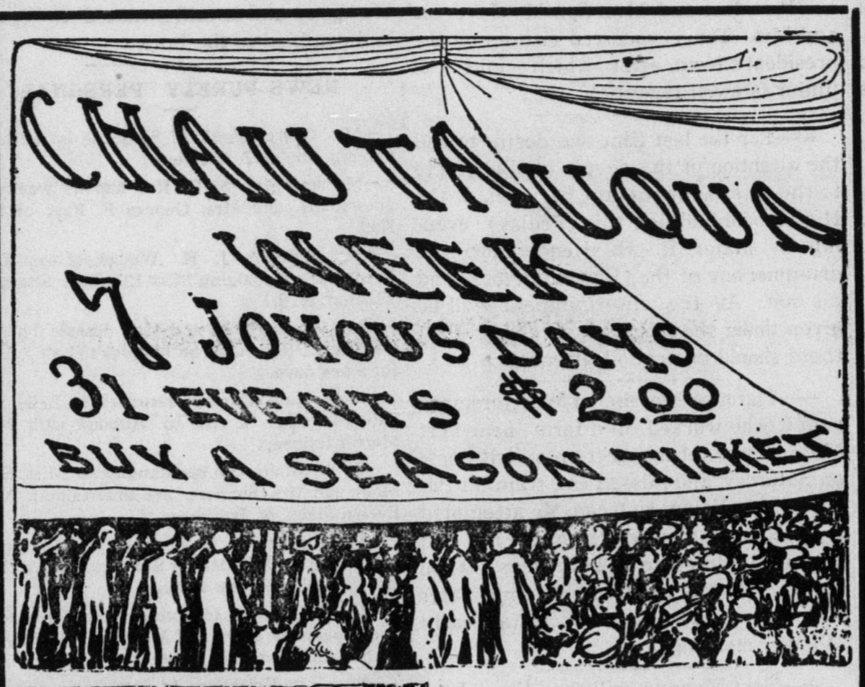 CHAUTAUQUA
WEEK
7 JOYOUS DAYS
31 EVENTS $2.00
BUY A SEASON TICKET